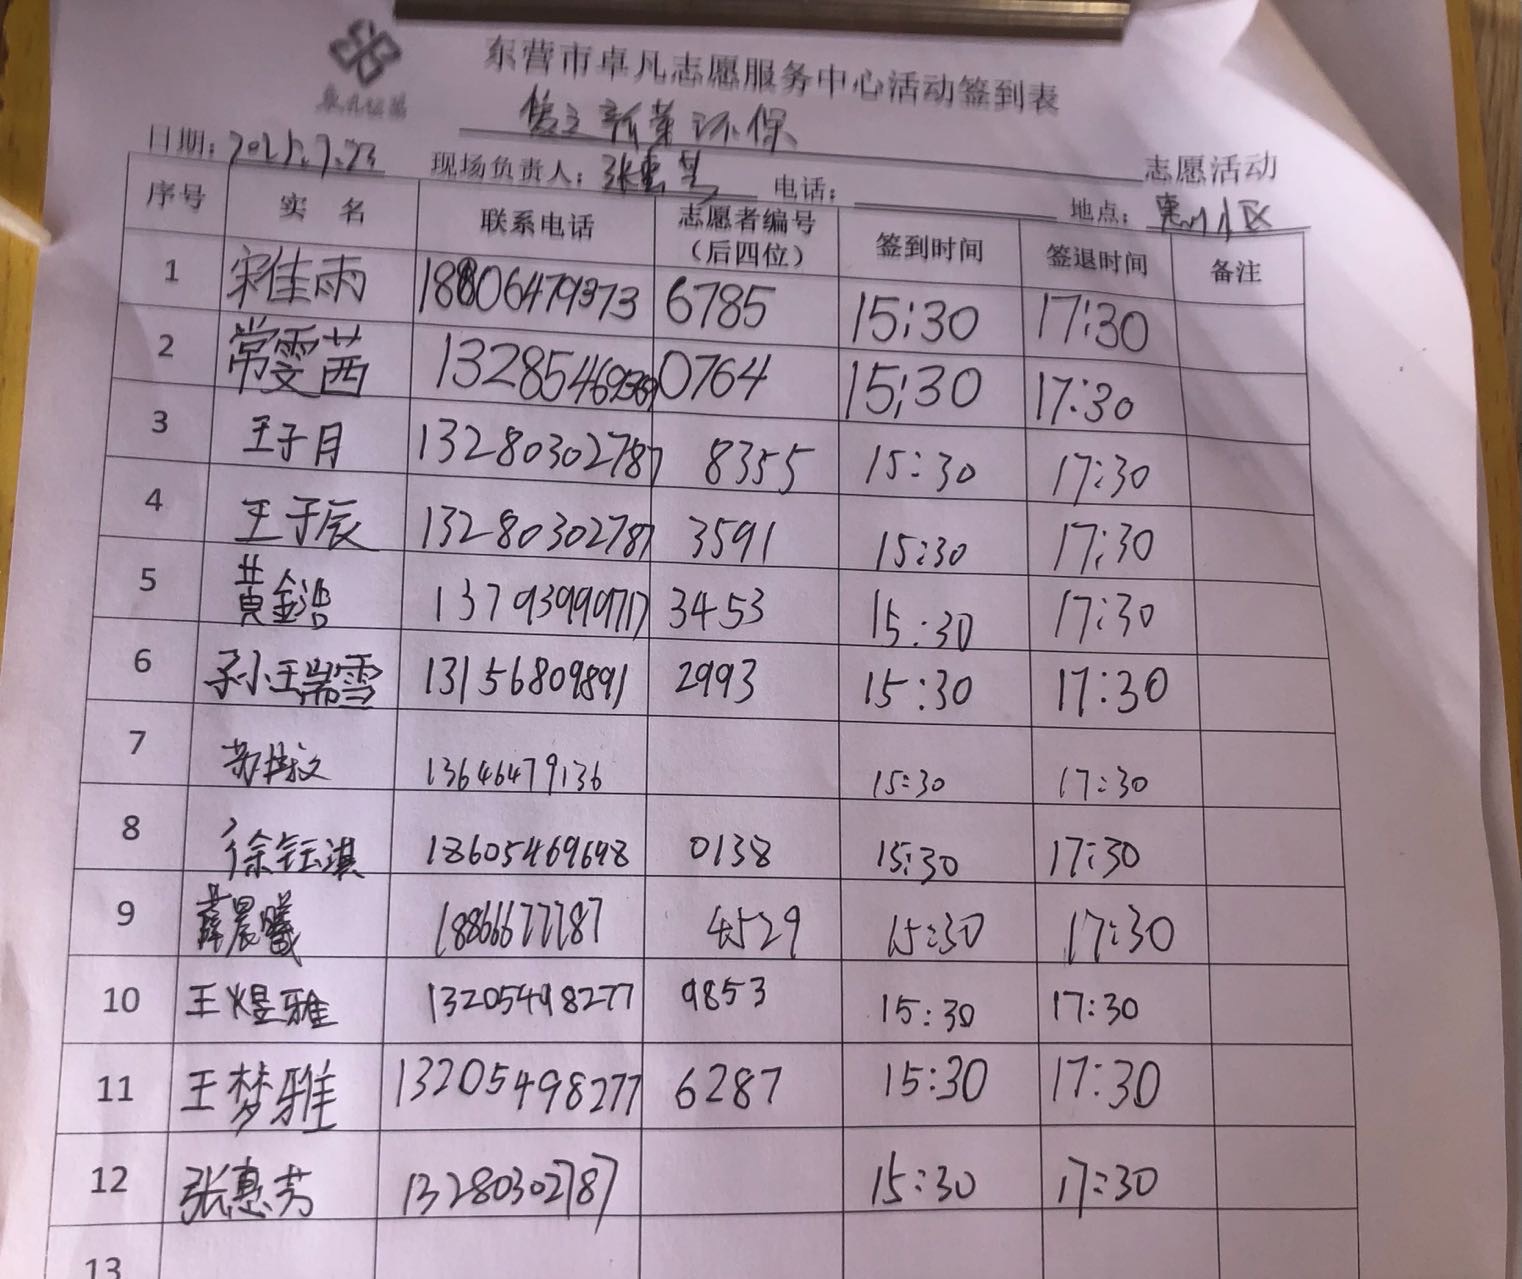 东营市卓凡志愿服务中心活动签到表
新 环保 志愿活动
日期: 2025.7.23 现场负责人: 张惠芳 电话: 地点: 惠州小区
序号 实 名 联系电话 志愿者编号（后四位） 签到时间 签退时间 备注
1 宋佳雨 18806479373 6785 15:30 17:30
2 常雯茜 0764 15:30 17:30
3 王子月 13280302787 8355 15:30 17:30
4 王子辰 13280302787 3591 15:30 17:30
5 黄鎏浩 3453 15:30 17:30
6 孙瑞雪 13156809891 2993 15:30 17:30
7 13646479136 15:30 17:30
8 徐钰淇 18605469698 0138 15:30 17:30
9 薛晨曦 18866677787 4529 15:30 17:30
10 王煜雅 13205498277 9853 15:30 17:30
11 王梦雅 13205498277 6287 15:30 17:30
12 张惠芳 13280302787 15:30 17:30
13